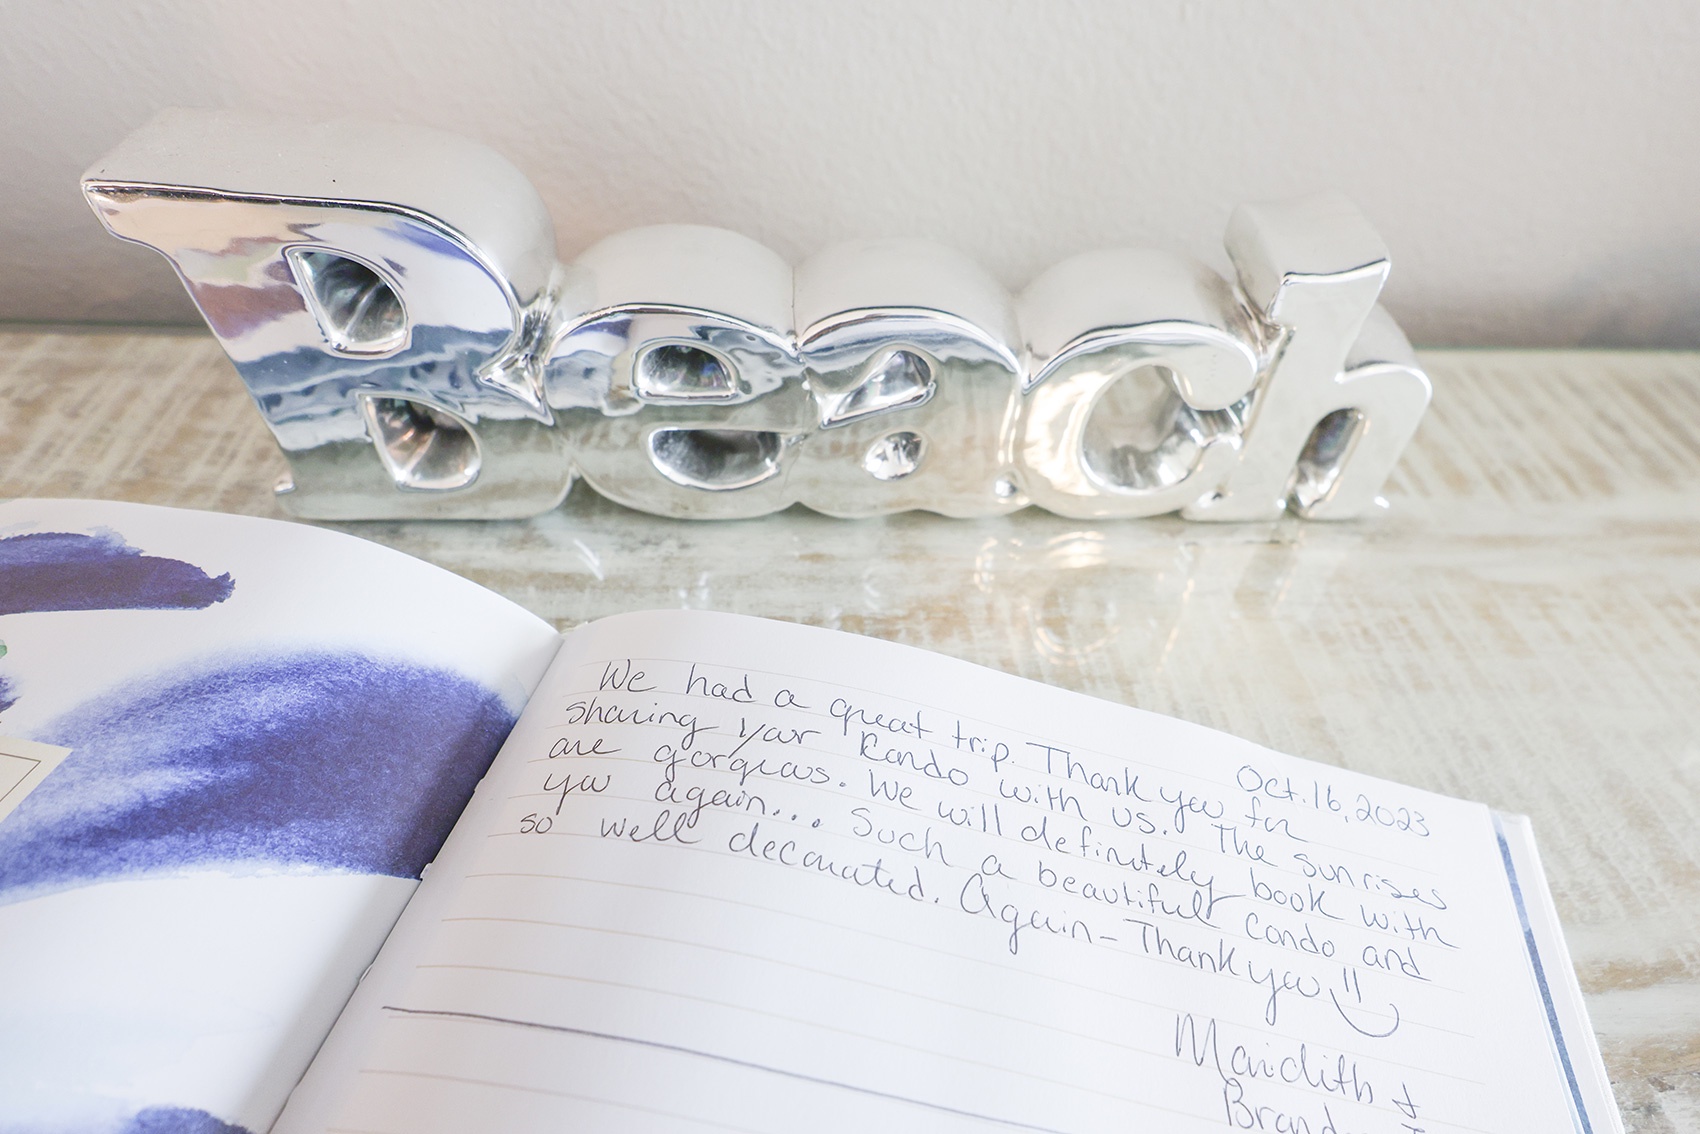 Beach
Oct. 16, 2023
We had a great trip. Thank you for
sharing your Condo with us. The sunrises
are gorgeous. We will definitely book with
you again... Such a beautiful condo and
so well decorated. Again - Thank you !!
Maridith &